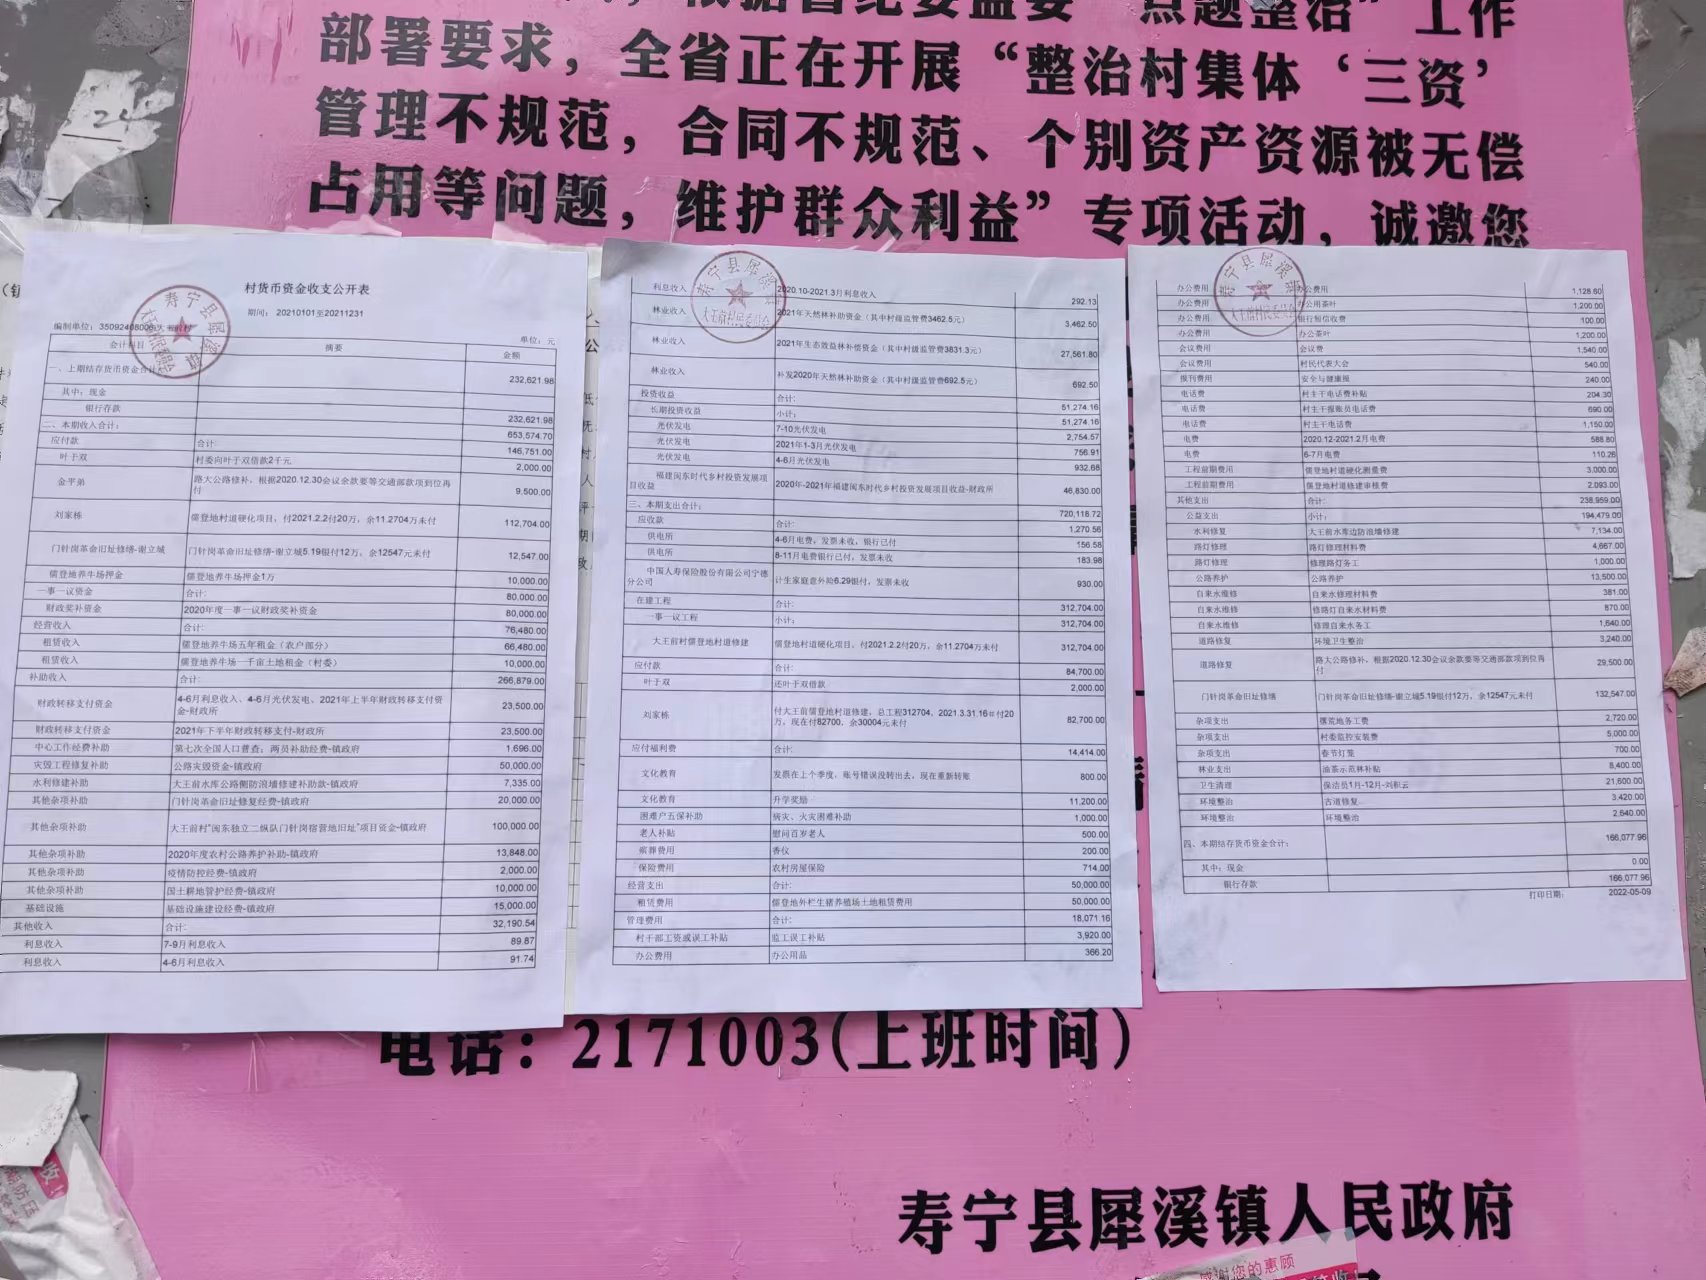 部署要求，全省正在开展“整治村集体‘三资’
管理不规范，合同不规范、个别资产资源被无偿
占用等问题，维护群众利益”专项活动，诚邀您
村货币资金收支公开表
期间： 20210101至20211231
单位：元
会计科目 摘要 金额
一、上期结存货币资金合计 232,621.98
其中：现金
银行存款 232,621.98
二、本期收入合计： 653,574.70
应付款 合计： 146,751.00
叶于双 村委向叶于双借款2千元 2,000.00
金平弟 路大公路修补，根据2020.12.30会议余款要等交通部款项到位再付 9,500.00
刘家栋 儒登地村道硬化项目，付2021.2.2付20万，余11.2704万未付 112,704.00
门针岗革命旧址修缮-谢立城 门针岗革命旧址修缮-谢立城5.19银付12万，余12547元未付 12,547.00
儒登地养牛场押金 儒登地养牛场押金1万 10,000.00
一事一议资金 合计： 80,000.00
财政奖补资金 2020年度一事一议财政奖补资金 80,000.00
经营收入 合计： 76,480.00
租赁收入 儒登地养牛场五年租金（农户部分） 66,480.00
租赁收入 儒登地养牛场一千亩土地租金（村委） 10,000.00
补助收入 合计： 266,879.00
财政转移支付资金 4-6月利息收入、4-6月光伏发电、2021年上半年财政转移支付资金-财政所 23,500.00
财政转移支付资金 2021年下半年财政转移支付-财政所 23,500.00
中心工作经费补助 第七次全国人口普查；两员补助经费-镇政府 1,696.00
灾毁工程修复补助 公路灾毁资金-镇政府 50,000.00
水利修建补助 大王前水库公路侧防浪墙修建补助款-镇政府 7,335.00
其他杂项补助 门针岗革命旧址修复经费-镇政府 20,000.00
其他杂项补助 大王前村“闽东独立二纵队门针岗宿营地旧址”项目资金-镇政府 100,000.00
其他杂项补助 2020年度农村公路养护补助-镇政府 13,848.00
其他杂项补助 疫情防控经费-镇政府 2,000.00
其他杂项补助 国土耕地管护经费-镇政府 10,000.00
基础设施 基础设施建设经费-镇政府 15,000.00
其他收入 合计： 32,190.54
利息收入 7-9月利息收入 89.87
利息收入 4-6月利息收入 91.74
利息收入 2020.10-2021.3月利息收入 292.13
林业收入 2021年天然林补助资金（其中村级监管费3462.5元） 3,462.50
林业收入 2021年生态效益林补偿资金（其中村级监管费3831.3元） 27,561.80
林业收入 补发2020年天然林补助资金（其中村级监管费692.5元） 692.50
投资收益 合计： 51,274.16
长期投资收益 小计： 51,274.16
光伏发电 7-10光伏发电 2,754.57
光伏发电 2021年1-3月光伏发电 756.91
光伏发电 4-6月光伏发电 932.68
福建闽东时代乡村投资发展项目收益 2020年-2021年福建闽东时代乡村投资发展项目收益-财政所 46,830.00
三、本期支出合计： 720,118.72
应收款 合计： 1,270.56
供电所 4-6月电费，发票未收，银行已付 156.58
供电所 8-11月电费银行已付，发票未收 183.98
中国人寿保险股份有限公司宁德分公司 计生家庭意外险6.29银付，发票未收 930.00
在建工程 合计： 312,704.00
一事一议工程 小计： 312,704.00
大王前村儒登地村道修建 儒登地村道硬化项目，付2021.2.2付20万，余11.2704万未付 312,704.00
应付款 合计： 84,700.00
叶于双 还叶于双借款 2,000.00
刘家栋 付大王前儒登地村道修建，总工程312704，2021.3.31.16#付20万，现在付82700，余30004元未付 82,700.00
应付福利费 合计： 14,414.00
文化教育 发票在上个季度，账号错误没转出去，现在重新转账 800.00
文化教育 升学奖励 11,200.00
困难户五保补助 病灾、火灾困难补助 1,000.00
老人补贴 慰问百岁老人 500.00
殡葬费用 香仪 200.00
保险费用 农村房屋保险 714.00
经营支出 合计： 50,000.00
租赁费用 儒登地外栏生猪养殖场土地租赁费用 50,000.00
管理费用 合计： 18,071.16
村干部工资或误工补贴 监工误工补贴 3,920.00
办公费用 办公用品 366.20
办公费用 办公费用 1,128.60
办公费用 办公用茶叶 1,200.00
办公费用 银行短信收费 100.00
办公费用 办公茶叶 1,200.00
会议费用 会议费 1,540.00
会议费用 村民代表大会 540.00
报刊费用 安全与健康报 240.00
电话费 村主干电话费补贴 204.30
电话费 村主干报账员电话费 690.00
电话费 村主干电话费 1,150.00
电费 2020.12-2021.2月电费 588.80
电费 6-7月电费 110.26
工程前期费用 儒登地村道硬化测量费 3,000.00
工程前期费用 儒登地村道修建审核费 2,093.00
其他支出 合计： 238,959.00
公益支出 小计： 194,479.00
水利修复 大王前水库边防浪墙修建 7,134.00
路灯修理 路灯修理材料费 4,667.00
路灯修理 修理路灯务工 1,000.00
公路养护 公路养护 13,500.00
自来水维修 自来水修理材料费 381.00
自来水维修 修路灯自来水材料费 870.00
自来水维修 修理自来水务工 1,640.00
道路修复 环境卫生整治 3,240.00
道路修复 路大公路修补，根据2020.12.30会议余款要等交通部款项到位再付 29,500.00
门针岗革命旧址修缮 门针岗革命旧址修缮-谢立城5.19银付12万，余12547元未付 132,547.00
杂项支出 撂荒地务工费 2,720.00
杂项支出 村委监控安装费 5,000.00
杂项支出 春节灯笼 700.00
林业支出 油茶示范林补贴 8,400.00
卫生清理 保洁员1月-12月-刘积云 21,600.00
环境整治 古道修复 3,420.00
环境整治 环境整治 2,640.00
四、本期结存货币资金合计： 166,077.96
其中：现金 0.00
银行存款 166,077.96
打印日期： 2022-05-09
电话：2171003(上班时间)
寿宁县犀溪镇人民政府
感谢您的惠顾